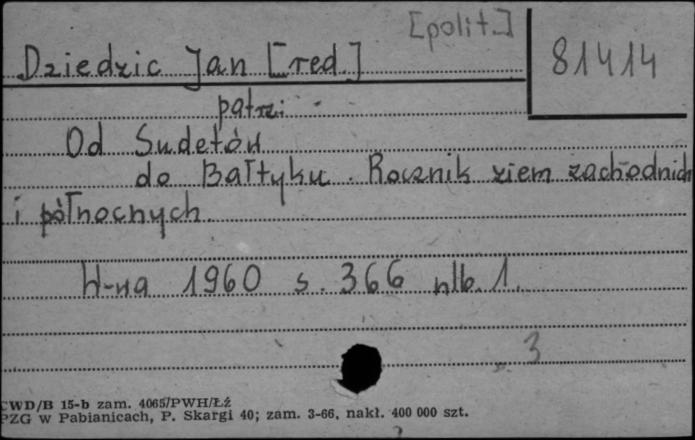 [polit.]
Dziedzic Jan [red.]
81414
patrz:
Od Sudetów
do Bałtyku. Rocznik ziem zachodnich
i północnych
W-na 1960 s. 366 nlb. 1.
3
CWD/B 15-b zam. 4065/PWH/Łź
PZG w Pabianicach, P. Skargi 40; zam. 3-66, nakł. 400 000 szt.